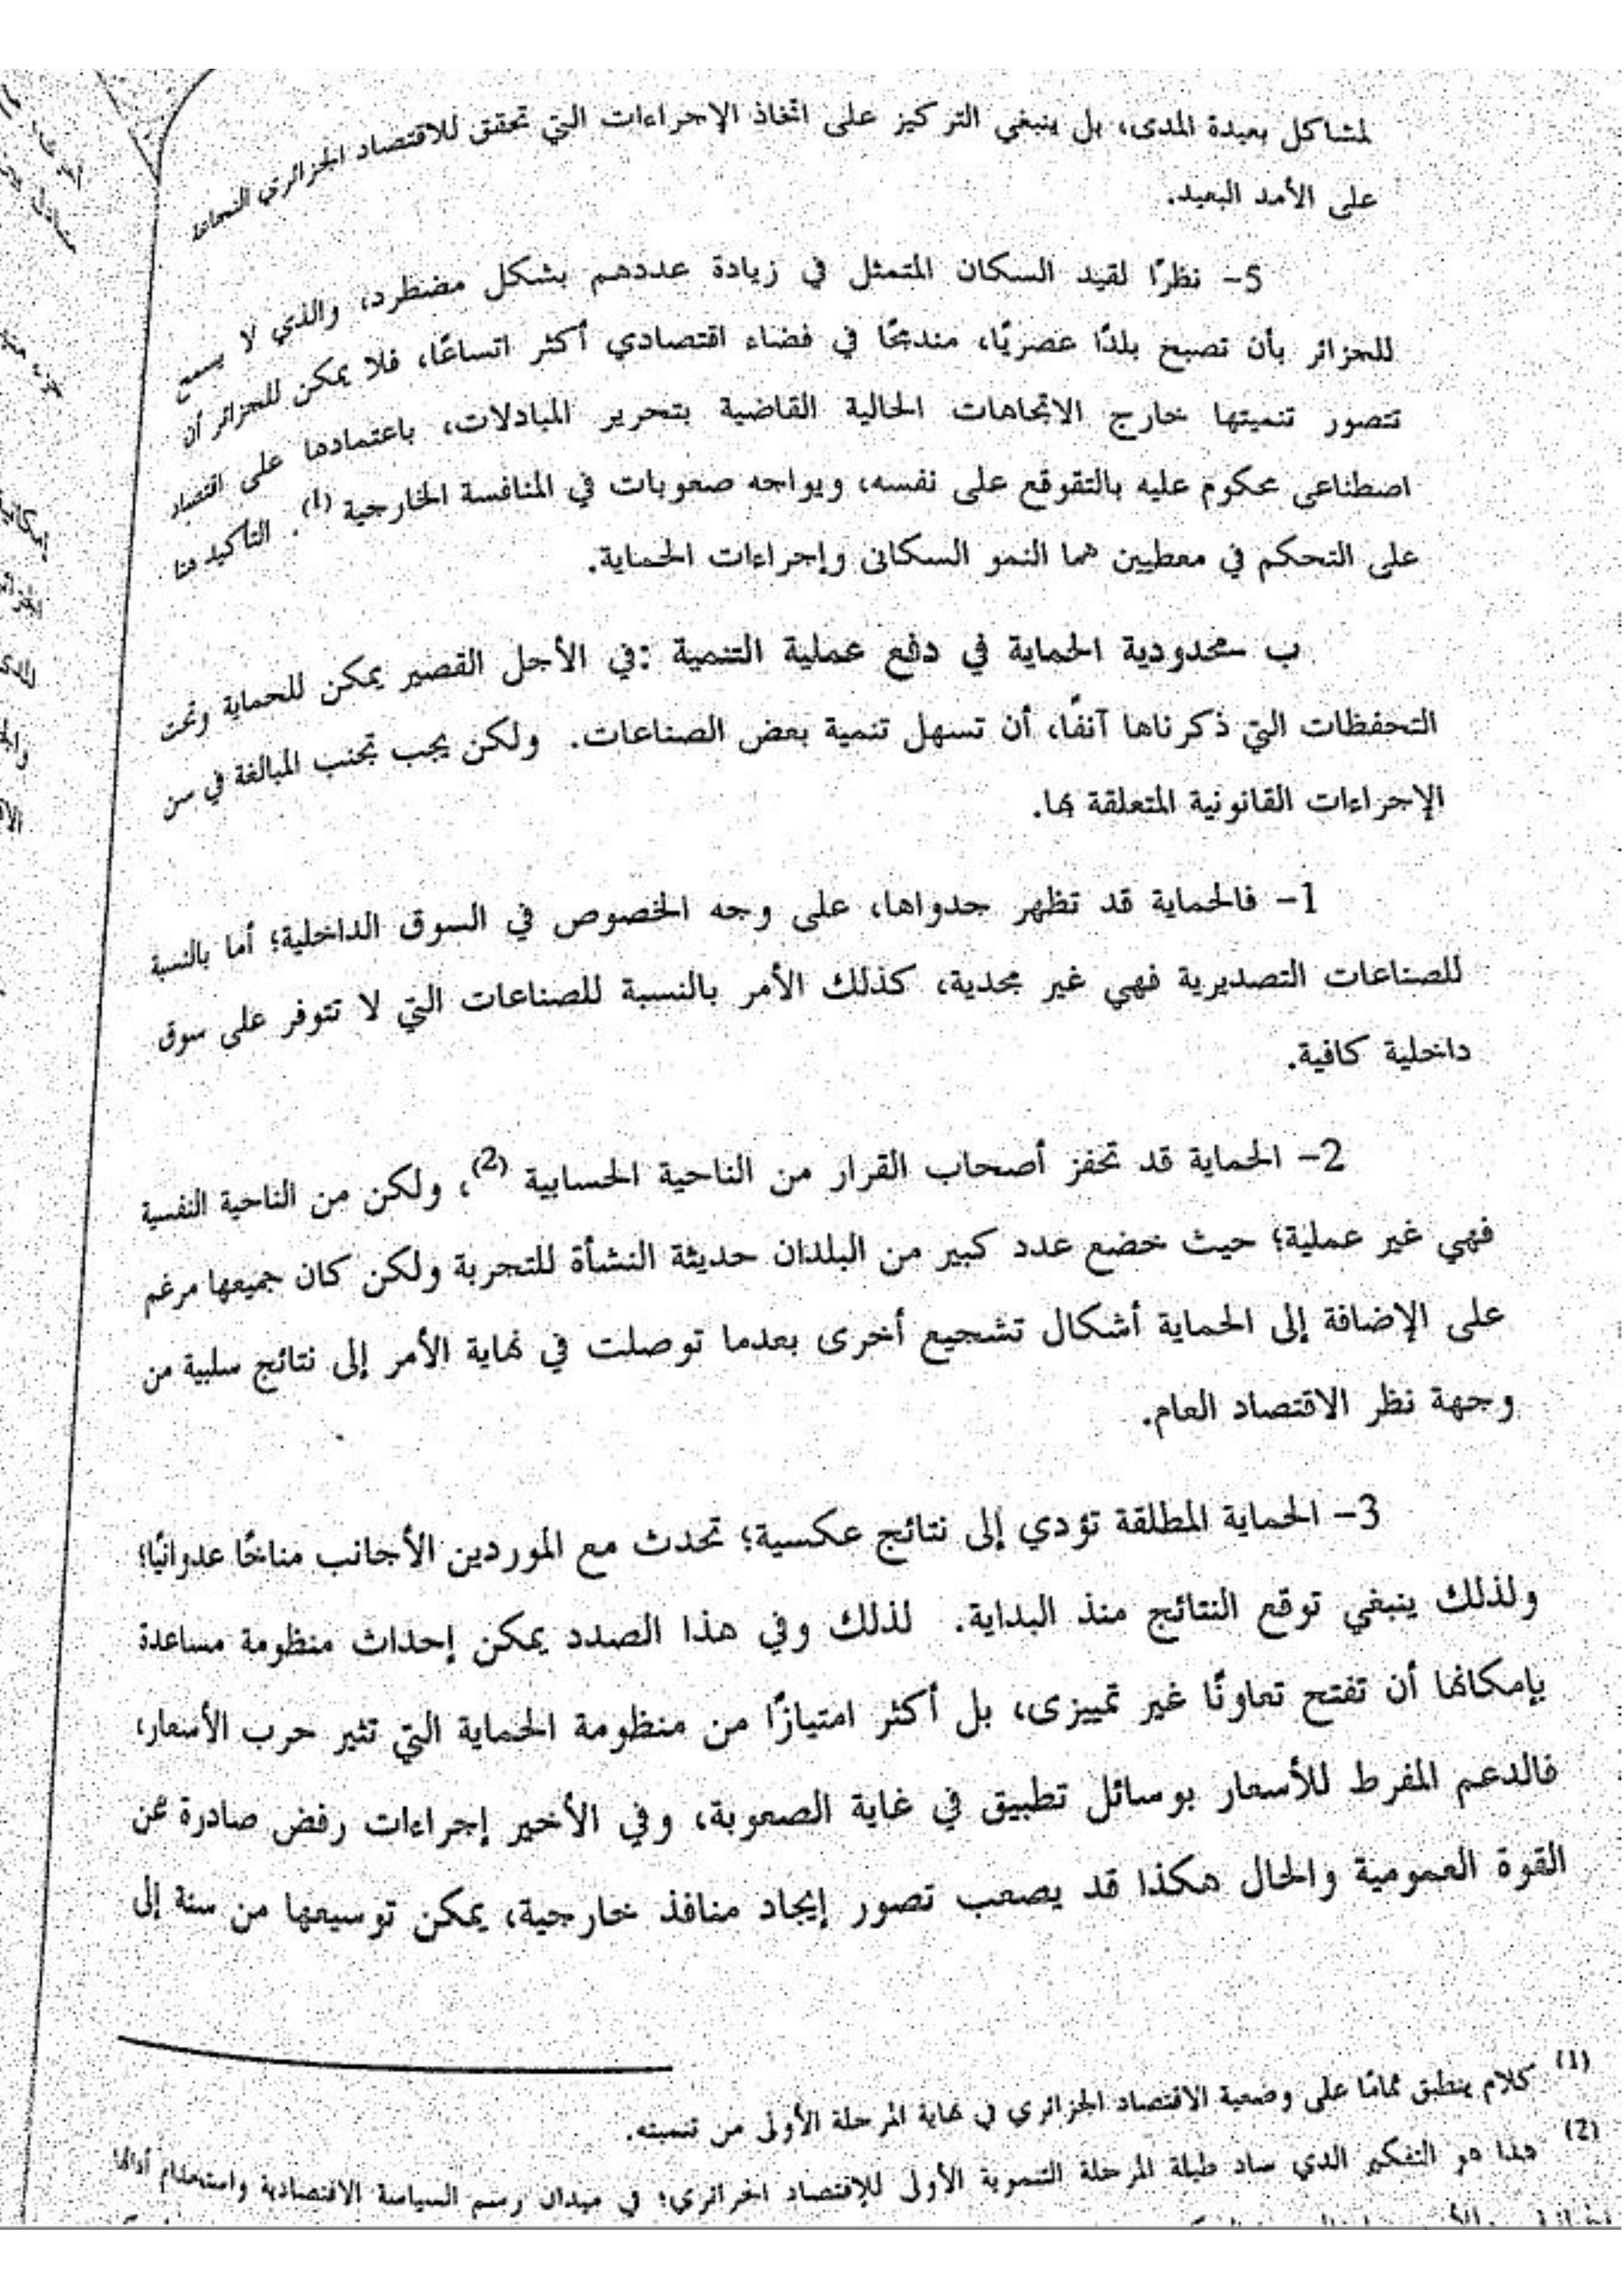 لمشاكل بعيدة المدى، بل ينبغي التركيز على اتخاذ الإجراءات التي تحقق للاقتصاد الجزائري النجاعة
على الأمد البعيد.
5- نظرًا لقيد السكان المتمثل في زيادة عددهم بشكل مضطرد، والذي لا يسمح
للجزائر بأن تصبح بلدًا عصريًا، مندمجًا في فضاء اقتصادي أكثر اتساعًا، فلا يمكن للجزائر أن
تتصور تنميتها خارج الاتجاهات الحالية القاضية بتحرير المبادلات، باعتمادها على اقتصاد
اصطناعى محكوم عليه بالتقوقع على نفسه، ويواجه صعوبات في المنافسة الخارجية (1). التأكيد هنا
على التحكم في معطيين هما النمو السكانى وإجراءات الحماية.
ب -محدودية الحماية في دفع عملية التنمية :في الأجل القصير يمكن للحماية وتحت
التحفظات التي ذكرناها آنفًا، أن تسهل تنمية بعض الصناعات. ولكن يجب تجنب المبالغة في سن
الإجراءات القانونية المتعلقة بها.
1- فالحماية قد تظهر جدواها، على وجه الخصوص في السوق الداخلية؛ أما بالنسبة
للصناعات التصديرية فهي غير مجدية، كذلك الأمر بالنسبة للصناعات التي لا تتوفر على سوق
داخلية كافية.
2- الحماية قد تحفز أصحاب القرار من الناحية الحسابية (2)، ولكن من الناحية النفسية
فهي غير عملية؛ حيث خضع عدد كبير من البلدان حديثة النشأة للتجربة ولكن كان جميعها مرغم
على الإضافة إلى الحماية أشكال تشجيع أخرى بعدما توصلت في نهاية الأمر إلى نتائج سلبية من
وجهة نظر الاقتصاد العام.
3- الحماية المطلقة تؤدي إلى نتائج عكسية؛ تحدث مع الموردين الأجانب مناخًا عدوانيًا؛
ولذلك ينبغي توقع النتائج منذ البداية. لذلك وفي هذا الصدد يمكن إحداث منظومة مساعدة
بإمكانها أن تفتح تعاونًا غير تمييزى، بل أكثر امتيازًا من منظومة الحماية التي تثير حرب الأسعار،
فالدعم المفرط للأسعار بوسائل تطبيق في غاية الصعوبة، وفي الأخير إجراءات رفض صادرة عن
القوة العمومية والحال هكذا قد يصعب تصور إيجاد منافذ خارجية، يمكن توسيعها من سنة إلى
(1) كلام ينطبق تمامًا على وضعية الاقتصاد الجزائري في نهاية المرحلة الأولى من تنميته.
(2) هذا هو التفكير الذي ساد طيلة المرحلة التنموية الأولى للإقتصاد الجزائري؛ في ميدان رسم السياسة الاقتصادية واستخدام أداتها